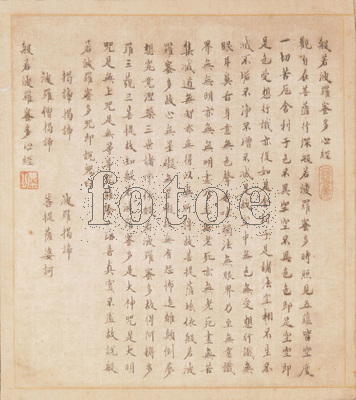 般若波羅蜜多心經
觀自在菩薩行深般若波羅蜜多時照見五蘊皆空度
一切苦厄舍利子色不異空空不異色色即是空空即
是色受想行識亦復如是舍利子是諸法空相不生不
滅不垢不淨不增不減是故空中無色無受想行識無
眼耳鼻舌身意無色聲香味觸法無眼界乃至無意識
界無無明亦無無明盡乃至無老死亦無老死盡無苦
集滅道無智亦無得以無所得故菩提薩埵依般若波
羅蜜多故心無罣礙無罣礙故無有恐怖遠離顛倒夢
想究竟涅槃三世諸佛依般若波羅蜜多故得阿耨多
羅三藐三菩提故知般若波羅蜜多是大神咒是大明
咒是無上咒是無等等咒能除一切苦真實不虛故說般
若波羅蜜多咒即說咒曰
揭諦揭諦 波羅揭諦
波羅僧揭諦 菩提薩婆訶
般若波羅蜜多心經
fotoe